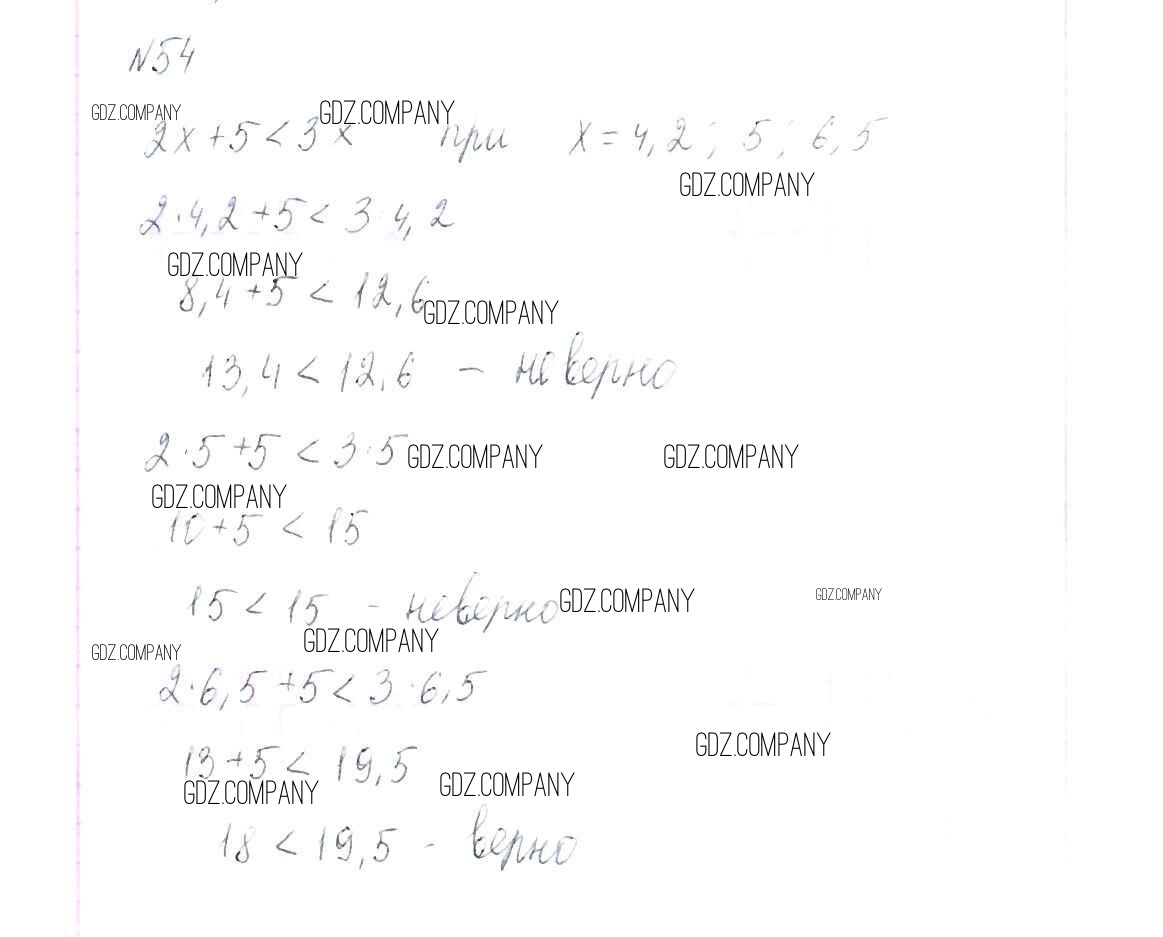 N54
GDZ.COMPANY GDZ.COMPANY
2x+5<3x при x=4,2; 5; 6,5
GDZ.COMPANY
2·4,2+5<3·4,2
GDZ.COMPANY
8,4+5<12,6
GDZ.COMPANY
13,4<12,6 - неверно
2·5+5<3·5 GDZ.COMPANY GDZ.COMPANY
GDZ.COMPANY
10+5<15
15<15 - неверно GDZ.COMPANY GDZ.COMPANY
GDZ.COMPANY
GDZ.COMPANY
2·6,5+5<3·6,5
GDZ.COMPANY
13+5<19,5
GDZ.COMPANY GDZ.COMPANY
18<19,5 - верно